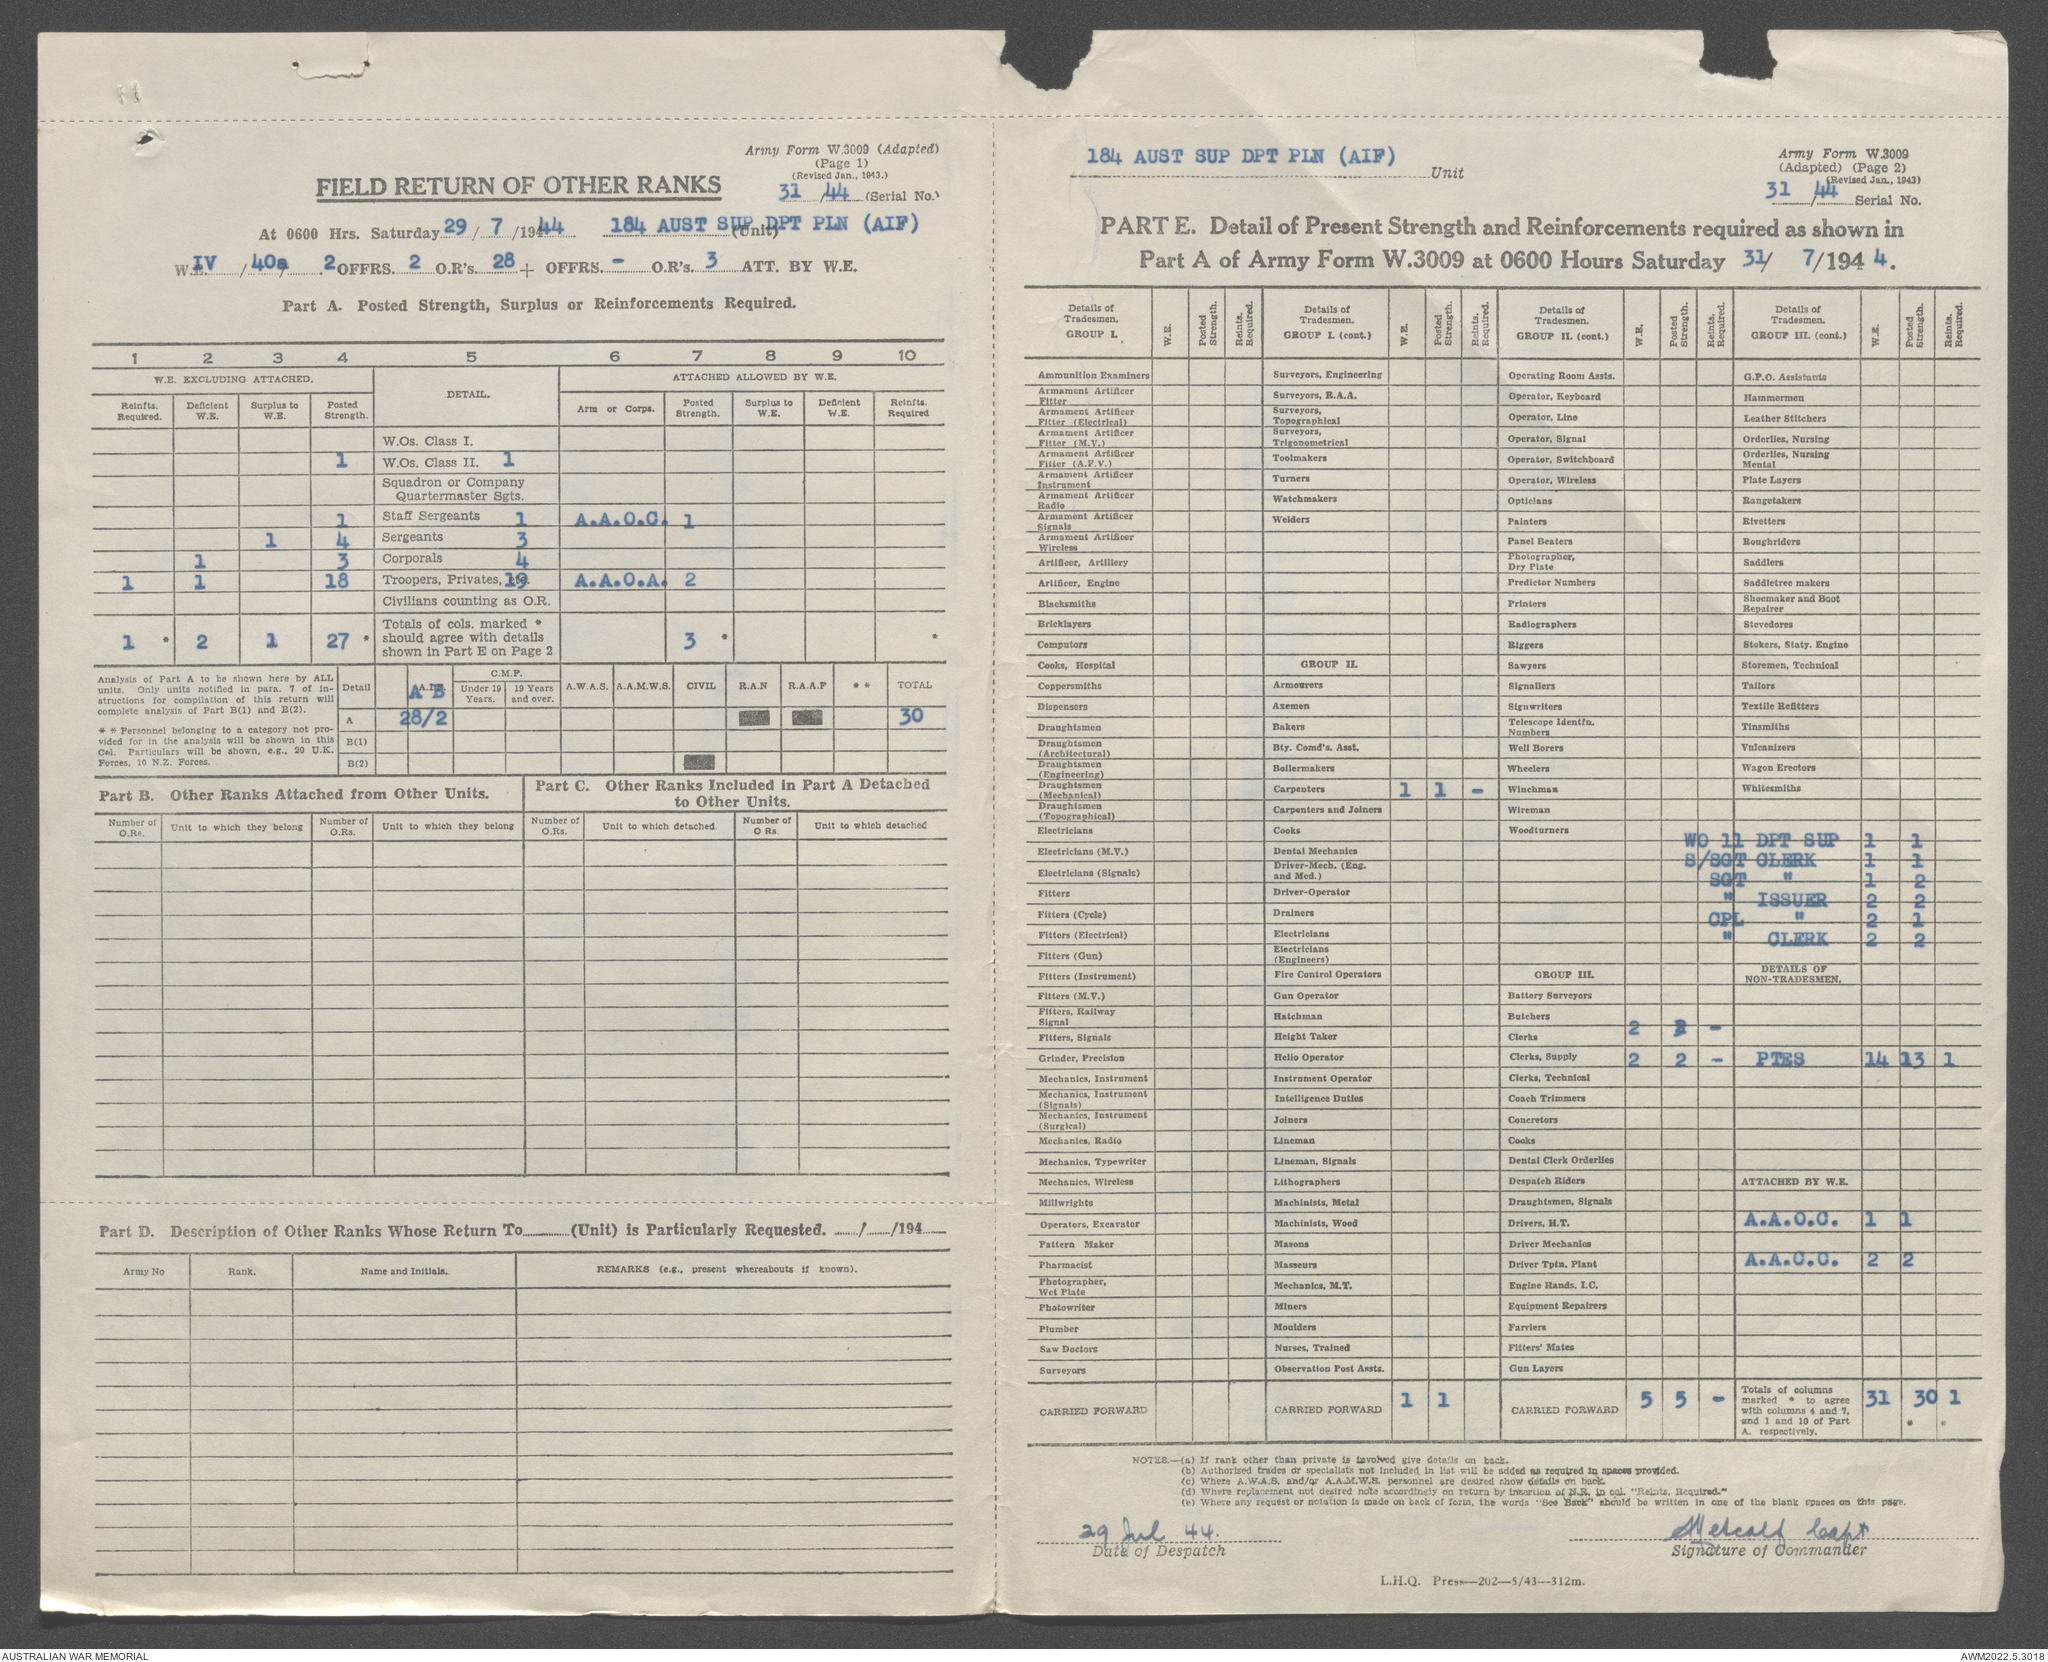 Army Form W.3009 (Adapted)
(Page 1)
(Revised Jan., 1943.)
FIELD RETURN OF OTHER RANKS
31/44 (Serial No.)
At 0600 Hrs. Saturday 29/7/1944 184 AUST SUP DPT PLN (AIF) (Unit)
W.E. IV/40a/ 2 OFFRS. 2 O.R's. 28 + OFFRS. - O.R's. 3 ATT. BY W.E.
Part A. Posted Strength, Surplus or Reinforcements Required.
1 2 3 4 5 6 7 8 9 10
W.E. EXCLUDING ATTACHED. DETAIL. ATTACHED ALLOWED BY W.E.
Reinfts. Required. Deficient W.E. Surplus to W.E. Posted Strength. Arm or Corps. Posted Strength. Surplus to W.E. Deficient W.E. Reinfts. Required
W.Os. Class I.
1 W.Os. Class II. 1
Squadron or Company
Quartermaster Sgts.
1 Staff Sergeants 1 A.A.O.C. 1
1 4 Sergeants 3
1 3 Corporals 4
1 1 18 Troopers, Privates, etc. 19 A.A.O.A. 2
Civilians counting as O.R.
Totals of cols. marked *
1 * 2 1 27 * should agree with details 3 * *
shown in Part E on Page 2
Analysis of Part A to be shown here by ALL
units. Only units notified in para. 7 of in-
structions for compilation of this return will
complete analysis of Part B(1) and B(2).
* * Personnel belonging to a category not pro-
vided for in the analysis will be shown in this
Col. Particulars will be shown, e.g., 20 U.K.
Forces, 10 N.Z. Forces.
Detail A B C.M.F. Under 19 Years. 19 Years and over. A.W.A.S. A.A.M.W.S. CIVIL R.A.N R.A.A.F * * TOTAL
A 28/2 30
B(1)
B(2)
Part B. Other Ranks Attached from Other Units.
Part C. Other Ranks Included in Part A Detached
to Other Units.
Number of O.Rs. Unit to which they belong Number of O.Rs. Unit to which they belong Number of O.Rs. Unit to which detached. Number of O Rs. Unit to which detached
Part D. Description of Other Ranks Whose Return To (Unit) is Particularly Requested. / /194
Army No Rank. Name and Initials. REMARKS (e.g., present whereabouts if known).
184 AUST SUP DPT PLN (AIF) Unit
Army Form W.3009
(Adapted) (Page 2)
(Revised Jan., 1943)
31/44 Serial No.
PART E. Detail of Present Strength and Reinforcements required as shown in
Part A of Army Form W.3009 at 0600 Hours Saturday 31/ 7/194 4.
Details of Tradesmen. GROUP I. W.E. Posted Strength. Reints. Required.
Ammunition Examiners
Armament Artificer Fitter
Armament Artificer Fitter (Electrical)
Armament Artificer Fitter (M.V.)
Armament Artificer Fitter (A.F.V.)
Armament Artificer Instrument
Armament Artificer Radio
Armament Artificer Signals
Armament Artificer Wireless
Artificer, Artillery
Artificer, Engine
Blacksmiths
Bricklayers
Computors
Cooks, Hospital
Coppersmiths
Dispensers
Draughtsmen
Draughtsmen (Architectural)
Draughtsmen (Engineering)
Draughtsmen (Mechanical)
Draughtsmen (Topographical)
Electricians
Electricians (M.V.)
Electricians (Signals)
Fitters
Fitters (Cycle)
Fitters (Electrical)
Fitters (Gun)
Fitters (Instrument)
Fitters (M.V.)
Fitters, Railway Signal
Fitters, Signals
Grinder, Precision
Mechanics, Instrument
Mechanics, Instrument (Signals)
Mechanics, Instrument (Surgical)
Mechanics, Radio
Mechanics, Typewriter
Mechanics, Wireless
Millwrights
Operators, Excavator
Pattern Maker
Pharmacist
Photographer, Wet Plate
Photowriter
Plumber
Saw Doctors
Surveyors
CARRIED FORWARD
Details of Tradesmen. GROUP I. (cont.) W.E. Posted Strength. Reints. Required.
Surveyors, Engineering
Surveyors, R.A.A.
Surveyors, Topographical
Surveyors, Trigonometrical
Toolmakers
Turners
Watchmakers
Welders
GROUP II.
Armourers
Axemen
Bakers
Bty. Comd's. Asst.
Boilermakers
Carpenters 1 1 -
Carpenters and Joiners
Cooks
Dental Mechanics
Driver-Mech. (Eng. and Med.)
Driver-Operator
Drainers
Electricians
Electricians (Engineers)
Fire Control Operators
Gun Operator
Hatchman
Height Taker
Helio Operator
Instrument Operator
Intelligence Duties
Joiners
Lineman
Lineman, Signals
Lithographers
Machinists, Metal
Machinists, Wood
Masons
Masseurs
Mechanics, M.T.
Miners
Moulders
Nurses, Trained
Observation Post Assts.
CARRIED FORWARD 1 1
Details of Tradesmen. GROUP II. (cont.) W.E. Posted Strength. Reints. Required.
Operating Room Assts.
Operator, Keyboard
Operator, Line
Operator, Signal
Operator, Switchboard
Operator, Wireless
Opticians
Painters
Panel Beaters
Photographer, Dry Plate
Predictor Numbers
Printers
Radiographers
Riggers
Sawyers
Signallers
Signwriters
Telescope Identfn. Numbers
Well Borers
Wheelers
Winchman
Wireman
Woodturners
GROUP III.
Battery Surveyors
Butchers
Clerks 2 -
Clerks, Supply 2 2 -
Clerks, Technical
Coach Trimmers
Concretors
Cooks
Dental Clerk Orderlies
Despatch Riders
Draughtsmen, Signals
Drivers, H.T.
Driver Mechanics
Driver Tptn. Plant
Engine Hands, I.C.
Equipment Repairers
Farriers
Fitters' Mates
Gun Layers
CARRIED FORWARD 5 5 -
Details of Tradesmen. GROUP III. (cont.) W.E. Posted Strength. Reints. Required.
G.P.O. Assistants
Hammermen
Leather Stitchers
Orderlies, Nursing
Orderlies, Nursing Mental
Plate Layers
Rangetakers
Rivetters
Roughriders
Saddlers
Saddletree makers
Shoemaker and Boot Repairer
Stevedores
Stokers, Staty. Engine
Storemen, Technical
Tailors
Textile Refitters
Tinsmiths
Vulcanizers
Wagon Erectors
Whitesmiths
WO 11 DPT SUP 1 1
S/SGT CLERK 1 1
SGT " 1 2
" ISSUER 2 2
CPL " 2 1
" CLERK 2 2
DETAILS OF NON-TRADESMEN.
PTES 14 13 1
ATTACHED BY W.E.
A.A.O.C. 1 1
A.A.C.C. 2 2
Totals of columns marked * to agree with columns 4 and 7, and 1 and 10 of Part A. respectively. 31 30 1
* *
NOTES.—(a) If rank other than private is involved give details on back.
(b) Authorised trades or specialists not included in list will be added as required in spaces provided.
(c) Where A.W.A.S. and/or A.A.M.W.S. personnel are desired show details on back.
(d) Where replacement not desired note accordingly on return by insertion of N.R. in col. "Reints. Required."
(e) Where any request or notation is made on back of form, the words "See Back" should be written in one of the blank spaces on this page.
29 Jul 44.
Date of Despatch
Metcalf Capt
Signature of Commander
L.H.Q. Press—202—5/43—312m.
AUSTRALIAN WAR MEMORIAL
AWM2022.5.3018